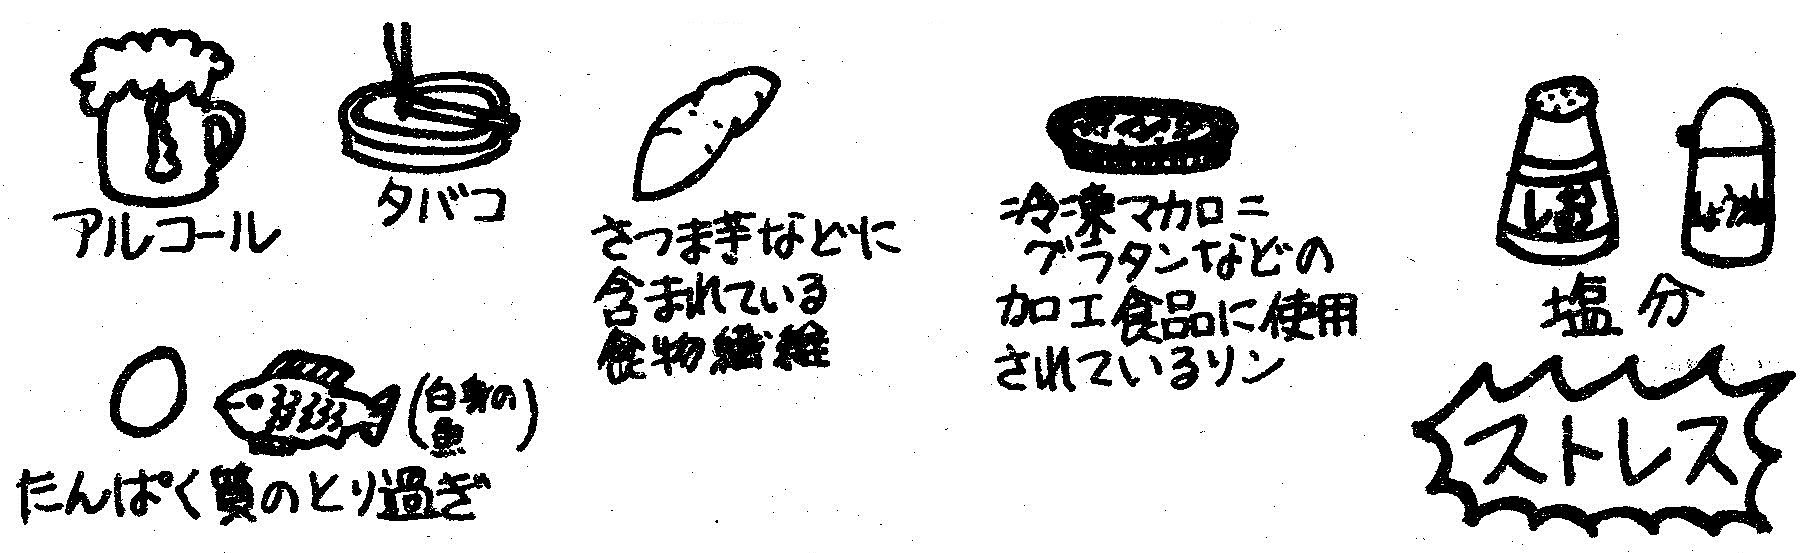 アルコール
タバコ
さつま芋などに
含まれている
食物繊維
冷凍マカロニ
グラタンなどの
加工食品に使用
されているリン
しお
しょうゆ
塩分
(白身の
魚)
たんぱく質のとり過ぎ
ストレス